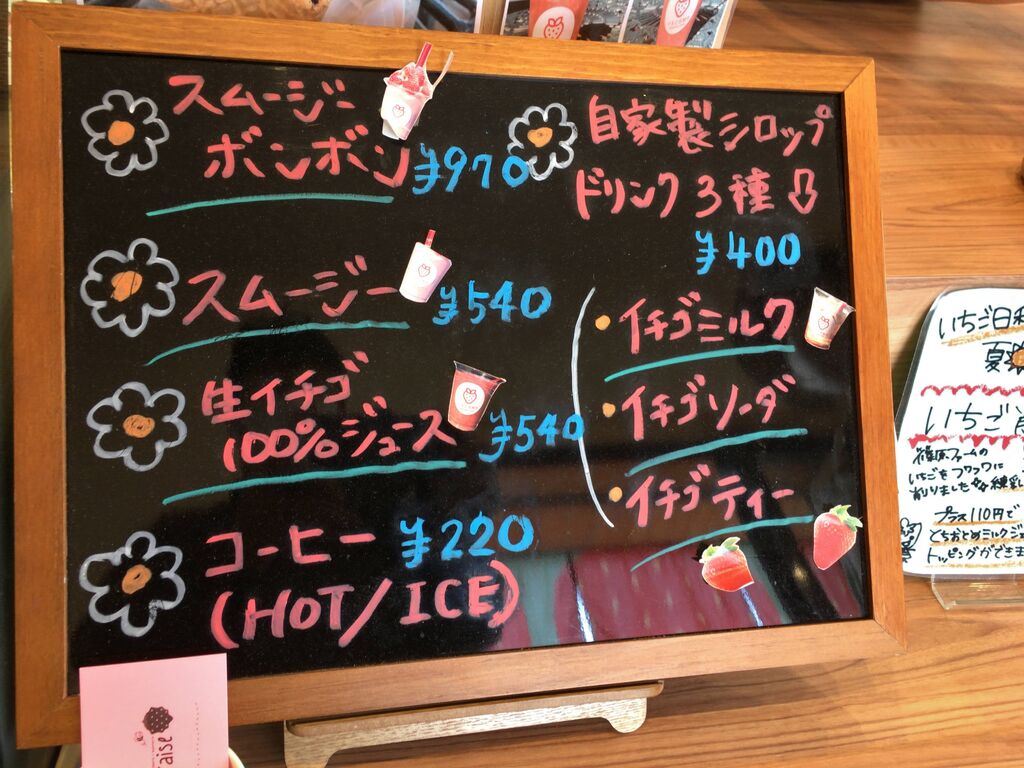 スムージー
ボンボン ¥970
スムージー ¥540
生イチゴ
100%ジュース ¥540
コーヒー ¥220
(HOT/ICE)
自家製シロップ
ドリンク3種⇩
¥400
・イチゴミルク
・イチゴソーダ
・イチゴティー
いちご日和
夏
いちご
篠原ファームの
いちごをフワフワに
削りました 練乳
プラス110円で
とちおとめミルクジ
トッピングができま
aise